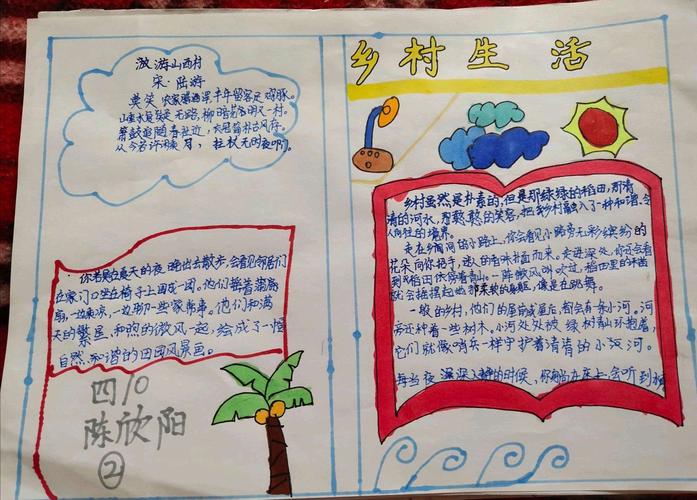 游山西村
宋·陆游
莫笑农家腊酒浑丰年留客足鸡豚。
山重水复疑无路,柳暗花明又一村。
箫鼓追随春社近,衣冠简朴古风存。
从今若许闲乘月,拄杖无时夜叩门。
你若是在夏天的夜晚出去散步,会看见邻居们
在家门口坐在椅子上围成一团。他们摇着蒲扇
扇,一边乘凉,一边聊一些家常事。他们和满
天的繁星,和煦的微风一起,绘成了一幅
自然、和谐的田园风景画。
四10
陈欣阳
②
乡村生活
乡村虽然是朴素的,但是那绿绿的稻田,清
清的河水,憨憨的笑容,把乡村融入了一种和谐,令
人向往的境界。
走在乡间的小路上,你会看见小路旁五彩缤纷的
花朵向你招手,迷人的香味扑面而来。走进深处,你还会看
到稻田依傍着青山。一阵微风吹过,稻田里的
就会摇摆起他那柔软的身躯,像是在跳舞。
一般的乡村,他们的屋前或屋后,都会有一条小河。河
旁还种着一些树木。小河处处被绿树青山环抱着,
它们就像哨兵一样守护着清清的小河。
每当夜深人静的时候,你躺在床上,会听到